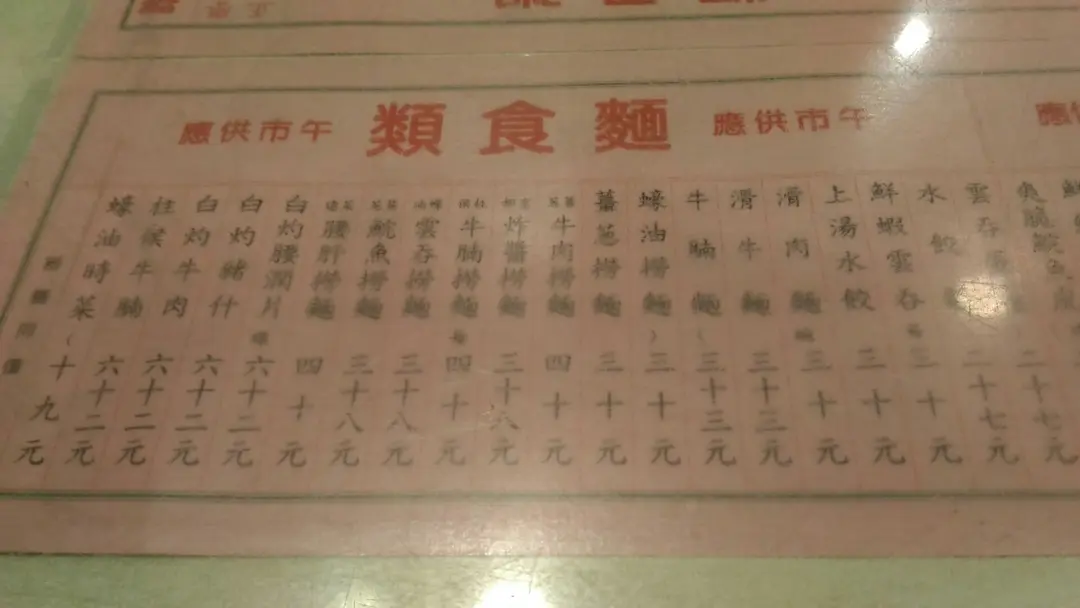 午市供應
麵食類
午市供應
雲吞麵 二十七元
水餃麵 三十元
鮮蝦雲吞 三十元
上湯水餃 三十元
滑肉麵 三十元
滑牛麵 三十三元
牛腩麵 三十三元
蠔油撈麵 三十元
薑蔥撈麵 三十元
薑蔥牛肉撈麵 四十元
炸醬撈麵 三十六元
柱侯牛腩撈麵 四十元
蠔油雲吞撈麵 三十八元
薑蔥鯇魚撈麵 三十八元
腰肝撈麵 四十元
白灼腰潤片 六十二元
白灼豬什 六十二元
白灼牛肉 六十二元
柱候牛腩 六十二元
蠔油時菜 十九元